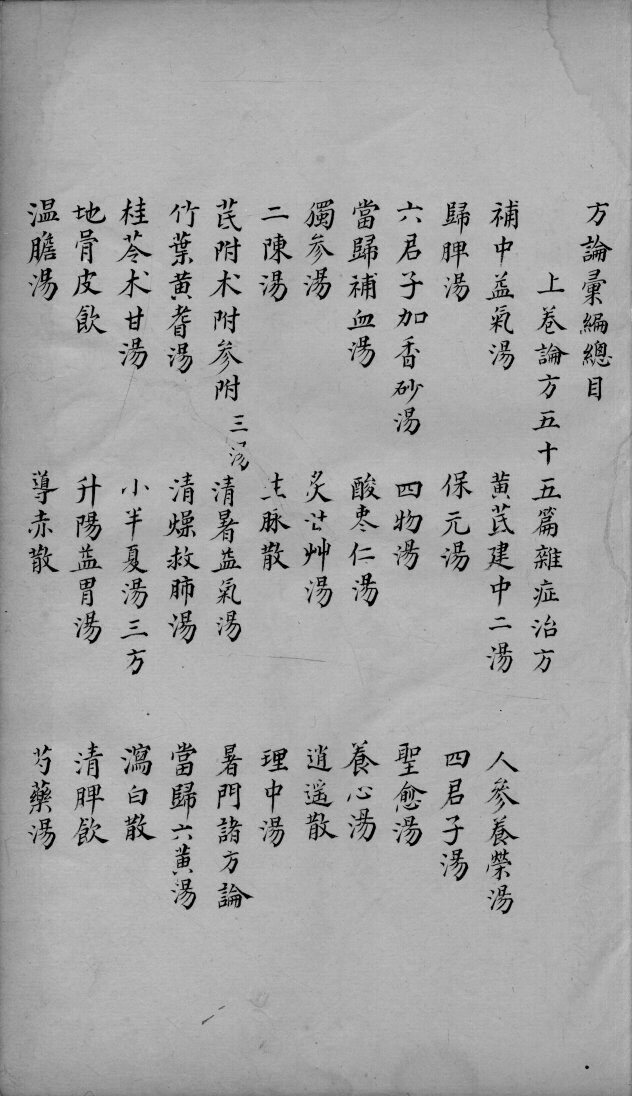 方論彙編總目
上卷論方五十五篇雜症治方
補中益氣湯 黃芪建中二湯 人參養榮湯
歸脾湯 保元湯 四君子湯
六君子加香砂湯 四物湯 聖愈湯
當歸補血湯 酸棗仁湯 養心湯
獨參湯 炙艸湯 逍遥散
二陳湯 脉散 理中湯
芪附术附參附三湯 清暑益氣湯 暑門諸方論
竹葉黃耆湯 清燥救肺湯 當歸六黃湯
桂苓术甘湯 小半夏湯三方 瀉白散
地骨皮飲 升陽益胃湯 清脾飲
温膽湯 導赤散 芍藥湯